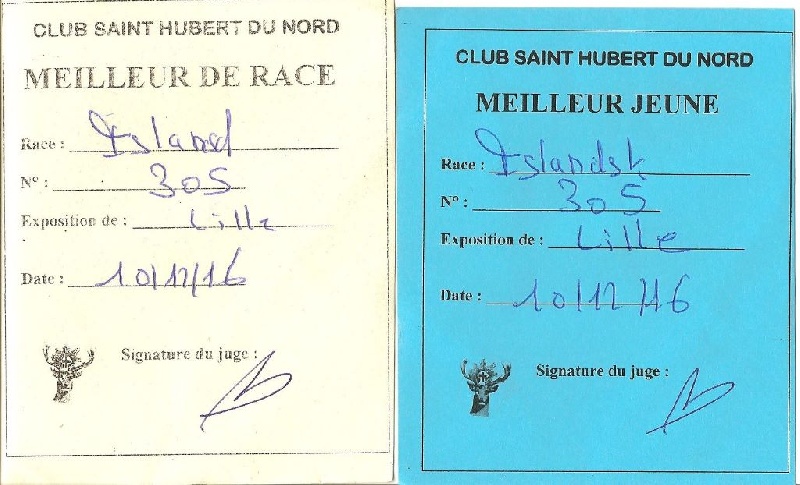 CLUB SAINT HUBERT DU NORD
MEILLEUR DE RACE
Race : Island
N° : 305
Exposition de : Lille
Date : 10/12/16
Signature du juge :
CLUB SAINT HUBERT DU NORD
MEILLEUR JEUNE
Race : Islandsk
N° : 305
Exposition de : Lille
Date : 10/12/16
Signature du juge :